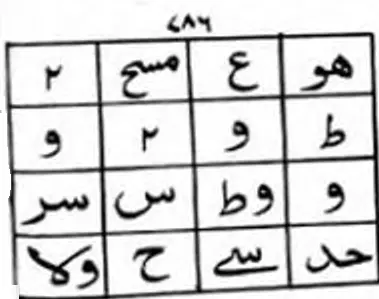 ۷۸۶
هو ع مسح ٢
ط و ٢ و
و وط س سر
حد سے ح ولا